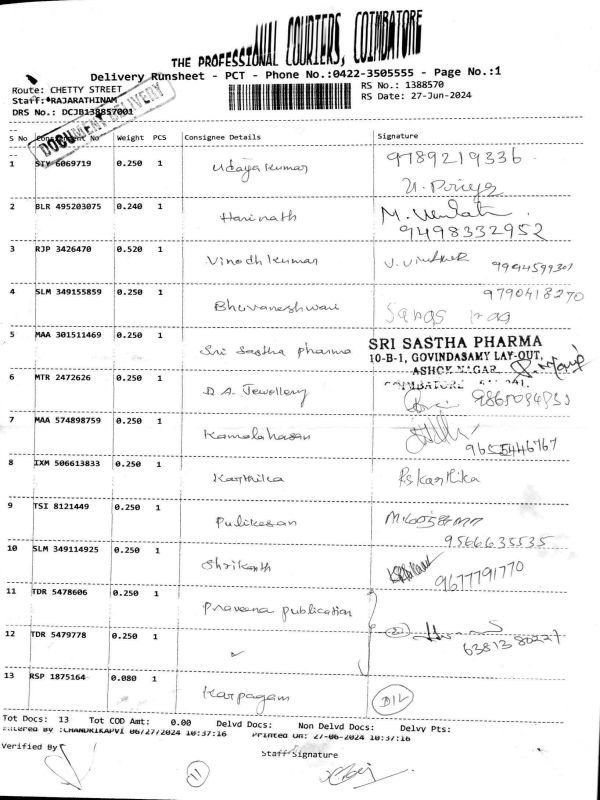 THE PROFESSIONAL COURIERS, COIMBATORE
Delivery Runsheet - PCT - Phone No.:0422-3505555 - Page No.:1
Route: CHETTY STREET
RS No.: 1388570
Staff: RAJARATHINAM
RS Date: 27-Jun-2024
DRS No.: DCJB138857001
DOCUMENT DELIVERY
S No Consignment No Weight PCS Consignee Details Signature
1 STV 6069719 0.250 1 Udaya kumar 9789219336
U. Poriya
2 BLR 495203075 0.240 1 Harinath M. Venkat
9498332952
3 RJP 3426470 0.520 1 Vinodh kumar
4 SLM 349155859 0.250 1 Bhuvaneshwari 9790418270
5 MAA 301511469 0.250 1 Sri Sastha pharma SRI SASTHA PHARMA
10-B-1, GOVINDASAMY LAY-OUT,
ASHOK NAGAR
COIMBATORE
6 MTR 2472626 0.250 1 D.A. Jewellery
7 MAA 574898759 0.250 1 Kamalahasan 9655446767
8 IXM 506613833 0.250 1 Karthika Rs karthika
9 TSI 8121449 0.250 1 Pulikesan
9566635535
10 SLM 349114925 0.250 1 Shrikanth 9677791770
11 TDR 5478606 0.250 1 Praveena publication
12 TDR 5479778 0.250 1 6381380227
13 RSP 1875164 0.080 1 Karpagam D/L
Tot Docs: 13 Tot COD Amt: 0.00 Delvd Docs: Non Delvd Docs: Delvy Pts:
Entered By :CHANDRIKAPVI 06/27/2024 10:37:16 Printed On: 27-06-2024 10:37:16
Verified By
Staff Signature
11